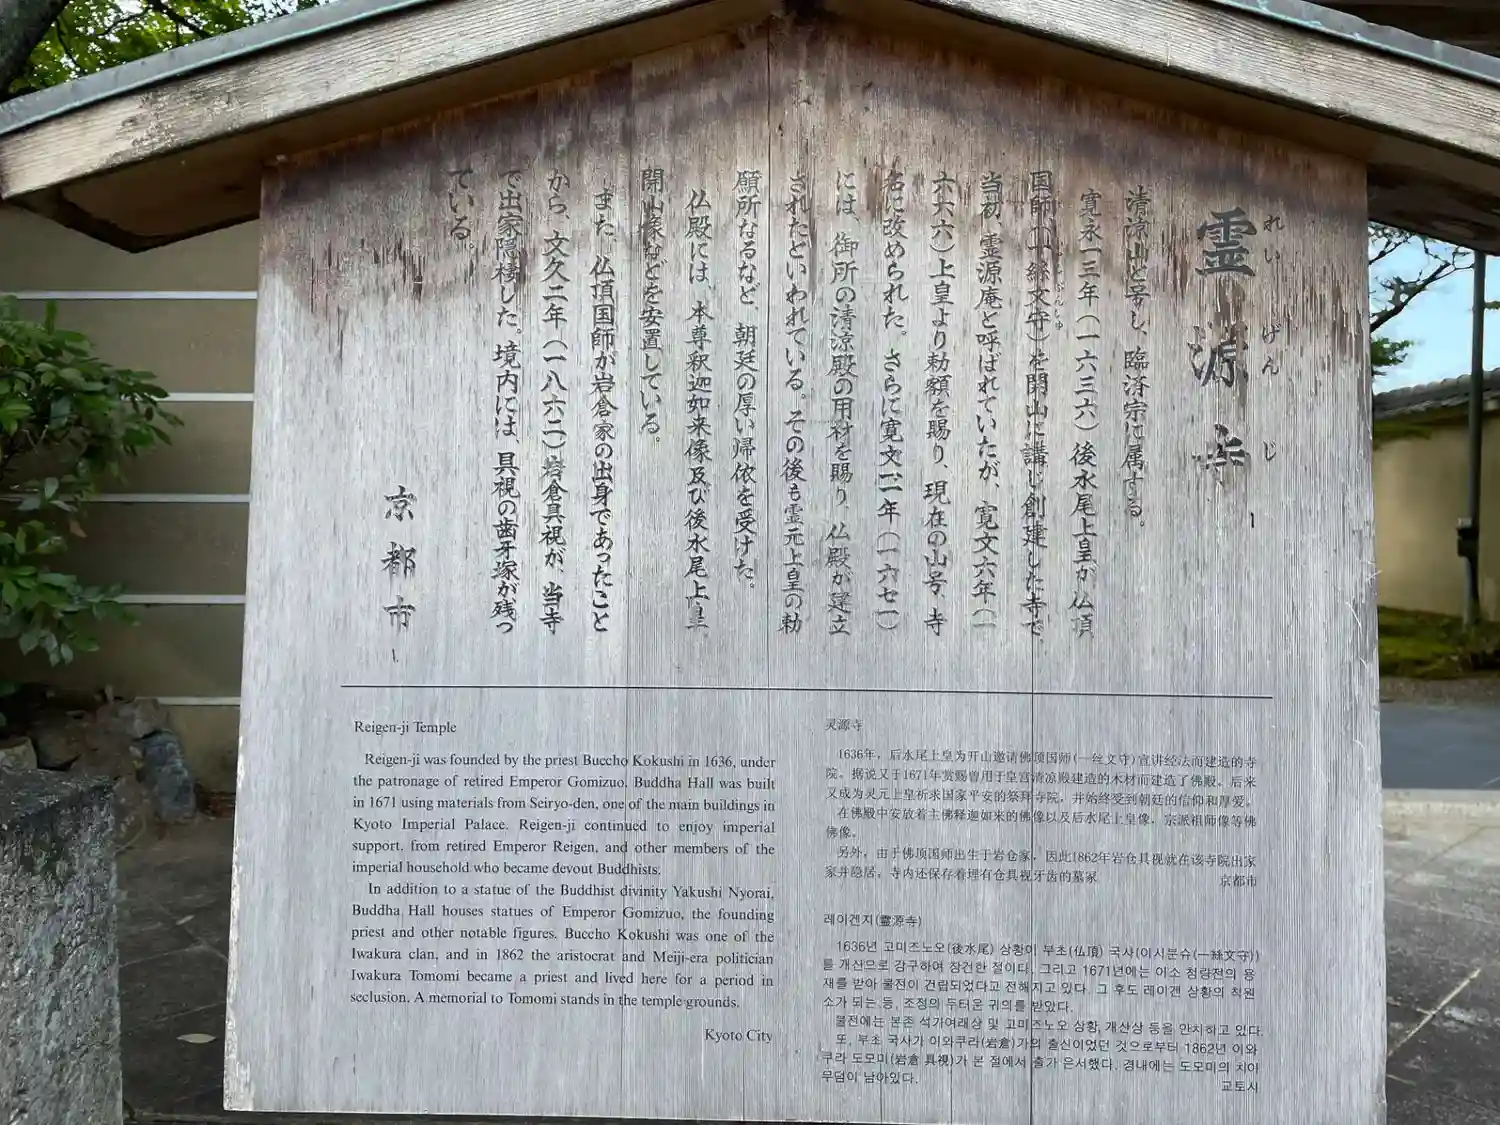 霊源寺
れいげんじ
清涼山と号し、臨済宗に属する。
寛永一三年(一六三六)後水尾上皇が仏頂
国師(一絲文守)を開山に講じ創建した寺で、
当初、霊源庵と呼ばれていたが、寛文六年(一
六六六)上皇より勅額を賜り、現在の山号、寺
名に改められた。さらに寛文一一年(一六七一)
には、御所の清涼殿の用材を賜り、仏殿が建立
されたといわれている。その後も霊元上皇の勅
願所なるなど、朝廷の厚い帰依を受けた。
仏殿には、本尊釈迦如来像及び後水尾上皇、
開山像などを安置している。
また、仏頂国師が岩倉家の出身であったこと
から、文久二年(一八六二)岩倉具視が、当寺
で出家隠棲した。境内には、具視の歯牙塚が残っ
ている。
京都市
Reigen-ji Temple
Reigen-ji was founded by the priest Buccho Kokushi in 1636, under
the patronage of retired Emperor Gomizuo. Buddha Hall was built
in 1671 using materials from Seiryo-den, one of the main buildings in
Kyoto Imperial Palace. Reigen-ji continued to enjoy imperial
support, from retired Emperor Reigen, and other members of the
imperial household who became devout Buddhists.
In addition to a statue of the Buddhist divinity Yakushi Nyorai,
Buddha Hall houses statues of Emperor Gomizuo, the founding
priest and other notable figures. Buccho Kokushi was one of the
Iwakura clan, and in 1862 the aristocrat and Meiji-era politician
Iwakura Tomomi became a priest and lived here for a period in
seclusion. A memorial to Tomomi stands in the temple grounds.
Kyoto City
灵源寺
1636年，后水尾上皇为开山邀请佛顶国师(一丝文守)宣讲经法而建造的寺
院。据说又于1671年赏赐曾用于皇宫清凉殿建造的木材而建造了佛殿。后来
又成为灵元上皇祈求国家平安的祭拜寺院，并始终受到朝廷的信仰和厚爱。
在佛殿中安放着主佛释迦如来的佛像以及后水尾上皇像，宗派祖师像等佛
佛像。
另外，由于佛顶国师出生于岩仓家，因此1862年岩仓具视就在该寺院出家
家并隐居。寺内还保存着埋有仓具视牙齿的墓冢
京都市
레이겐지(靈源寺)
1636년 고미즈노오(後水尾) 상황이 부초(仏頂) 국사(이시분슈(一絲文守))
를 개산으로 강구하여 창건한 절이다. 그리고 1671년에는 이소 청량전의 용
재를 받아 불전이 건립되었다고 전해지고 있다. 그 후도 레이겐 상황의 칙원
소가 되는 등, 조정의 두터운 귀의를 받았다.
불전에는 본존 석가여래상 및 고미즈노오 상황, 개산상 등을 안치하고 있다.
또, 부초 국사가 이와쿠라(岩倉)가의 출신이었던 것으로부터 1862년 이와
쿠라 도모미(岩倉 具視)가 본 절에서 출가 은서했다. 경내에는 도모미의 치아
무덤이 남아있다.
교토시